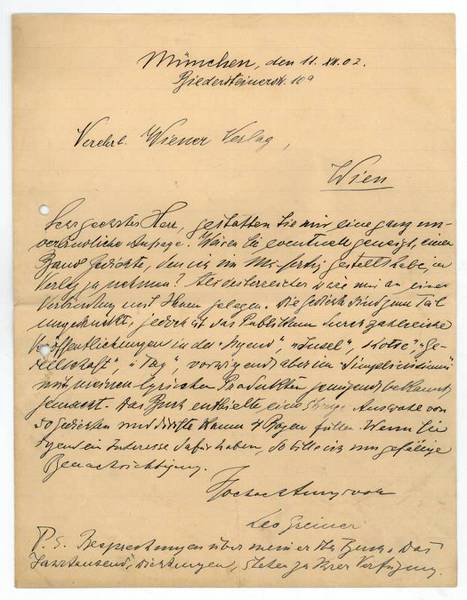 München, den 11. XII. 02.
Biedersteinerstr. 10 9
Verehrl. Wiener Verlag,
Wien
Sehr geehrter Herr, gestatten Sie mir eine ganz un-
verbindliche Anfrage: Wären Sie eventuell geneigt, einen
Band Gedichte, den ich im Ms. fertig gestellt habe, in
Verlag zu nehmen? Als Oesterreicher wäre mir an einer
Verbindung mit Ihnen gelegen. Die Gedichte sind zum Teil
ungedruckt, jedoch ist das Publikum durch zahlreiche
Veröffentlichungen in der "Jugend", "Insel", "Ge-
sellschaft", "Tag", vorwiegend aber im Simplicissimus
mit meinen lyrischen Produkten genügend bekannt
gemacht. Das Buch enthielte eine strenge Auswahl von
50 Gedichten und dürfte kaum 4 Bogen füllen. Wenn Sie
irgend ein Interesse dafür haben, so bitte ich um gefällige
Benachrichtigung.
Hochachtungsvoll
Leo Greiner
P. S. Besprechungen über mein erstes Buch, das
Jahrtausend, Dichtungen, stehen zu Ihrer Verfügung.